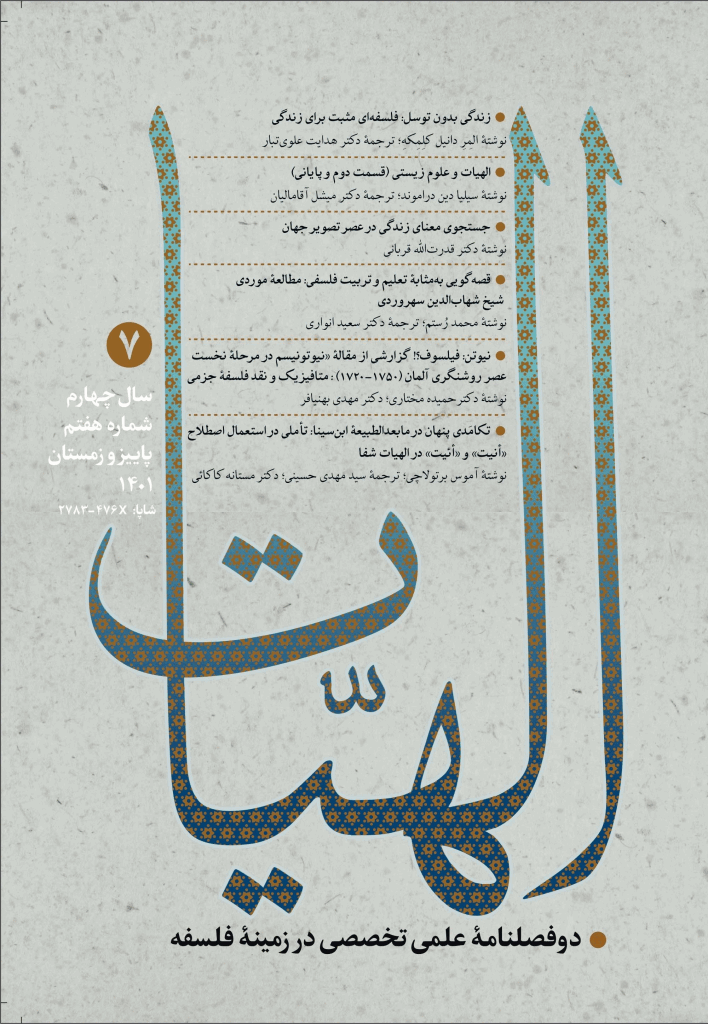 ● زندگی بدون توسل: فلسفه‌ای مثبت برای زندگی
نوشتهٔ المِر دانیل کلِمکِه؛ ترجمهٔ دکتر هدایت علوی‌تبار
● الهیات و علوم زیستی (قسمت دوم و پایانی)
نوشتهٔ سیلیا دین دراموند؛ ترجمهٔ دکتر میشل آقامالیان
● جستجوی معنای زندگی در عصر تصویر جهان
نوشتهٔ دکتر قدرت‌الله قربانی
● قصه‌گویی به‌مثابهٔ تعلیم و تربیت فلسفی: مطالعهٔ موردی
شیخ شهاب‌الدین سهروردی
نوشتهٔ محمد رُستم؛ ترجمهٔ دکتر سعید انواری
● نیوتن: فیلسوف؟! گزارشی از مقالهٔ «نیوتونیسم در مرحلهٔ نخست
عصر روشنگری آلمان (۱۷۵۰-۱۷۲۰) : متافیزیک و نقد فلسفهٔ جزمی
نوشتهٔ دکتر حمیده مختاری؛ دکتر مهدی بهنیافر
● تکامَدی پنهان در مابعدالطبیعهٔ ابن‌سینا: تأملی در استعمال اصطلاح
«أنیت» و «أئیت» در الهیات شفا
نوشتهٔ آموس برتولاچی؛ ترجمهٔ سید مهدی حسینی؛ دکتر مستانه کاکائی
۷
سال چهارم
شماره هفتم
پاییز و زمستان
۱۴۰۱
شاپا: ۲۷۸۳-۴۷۶X
الهیّات
● دوفصلنامهٔ علمی تخصصی در زمینهٔ فلسفه